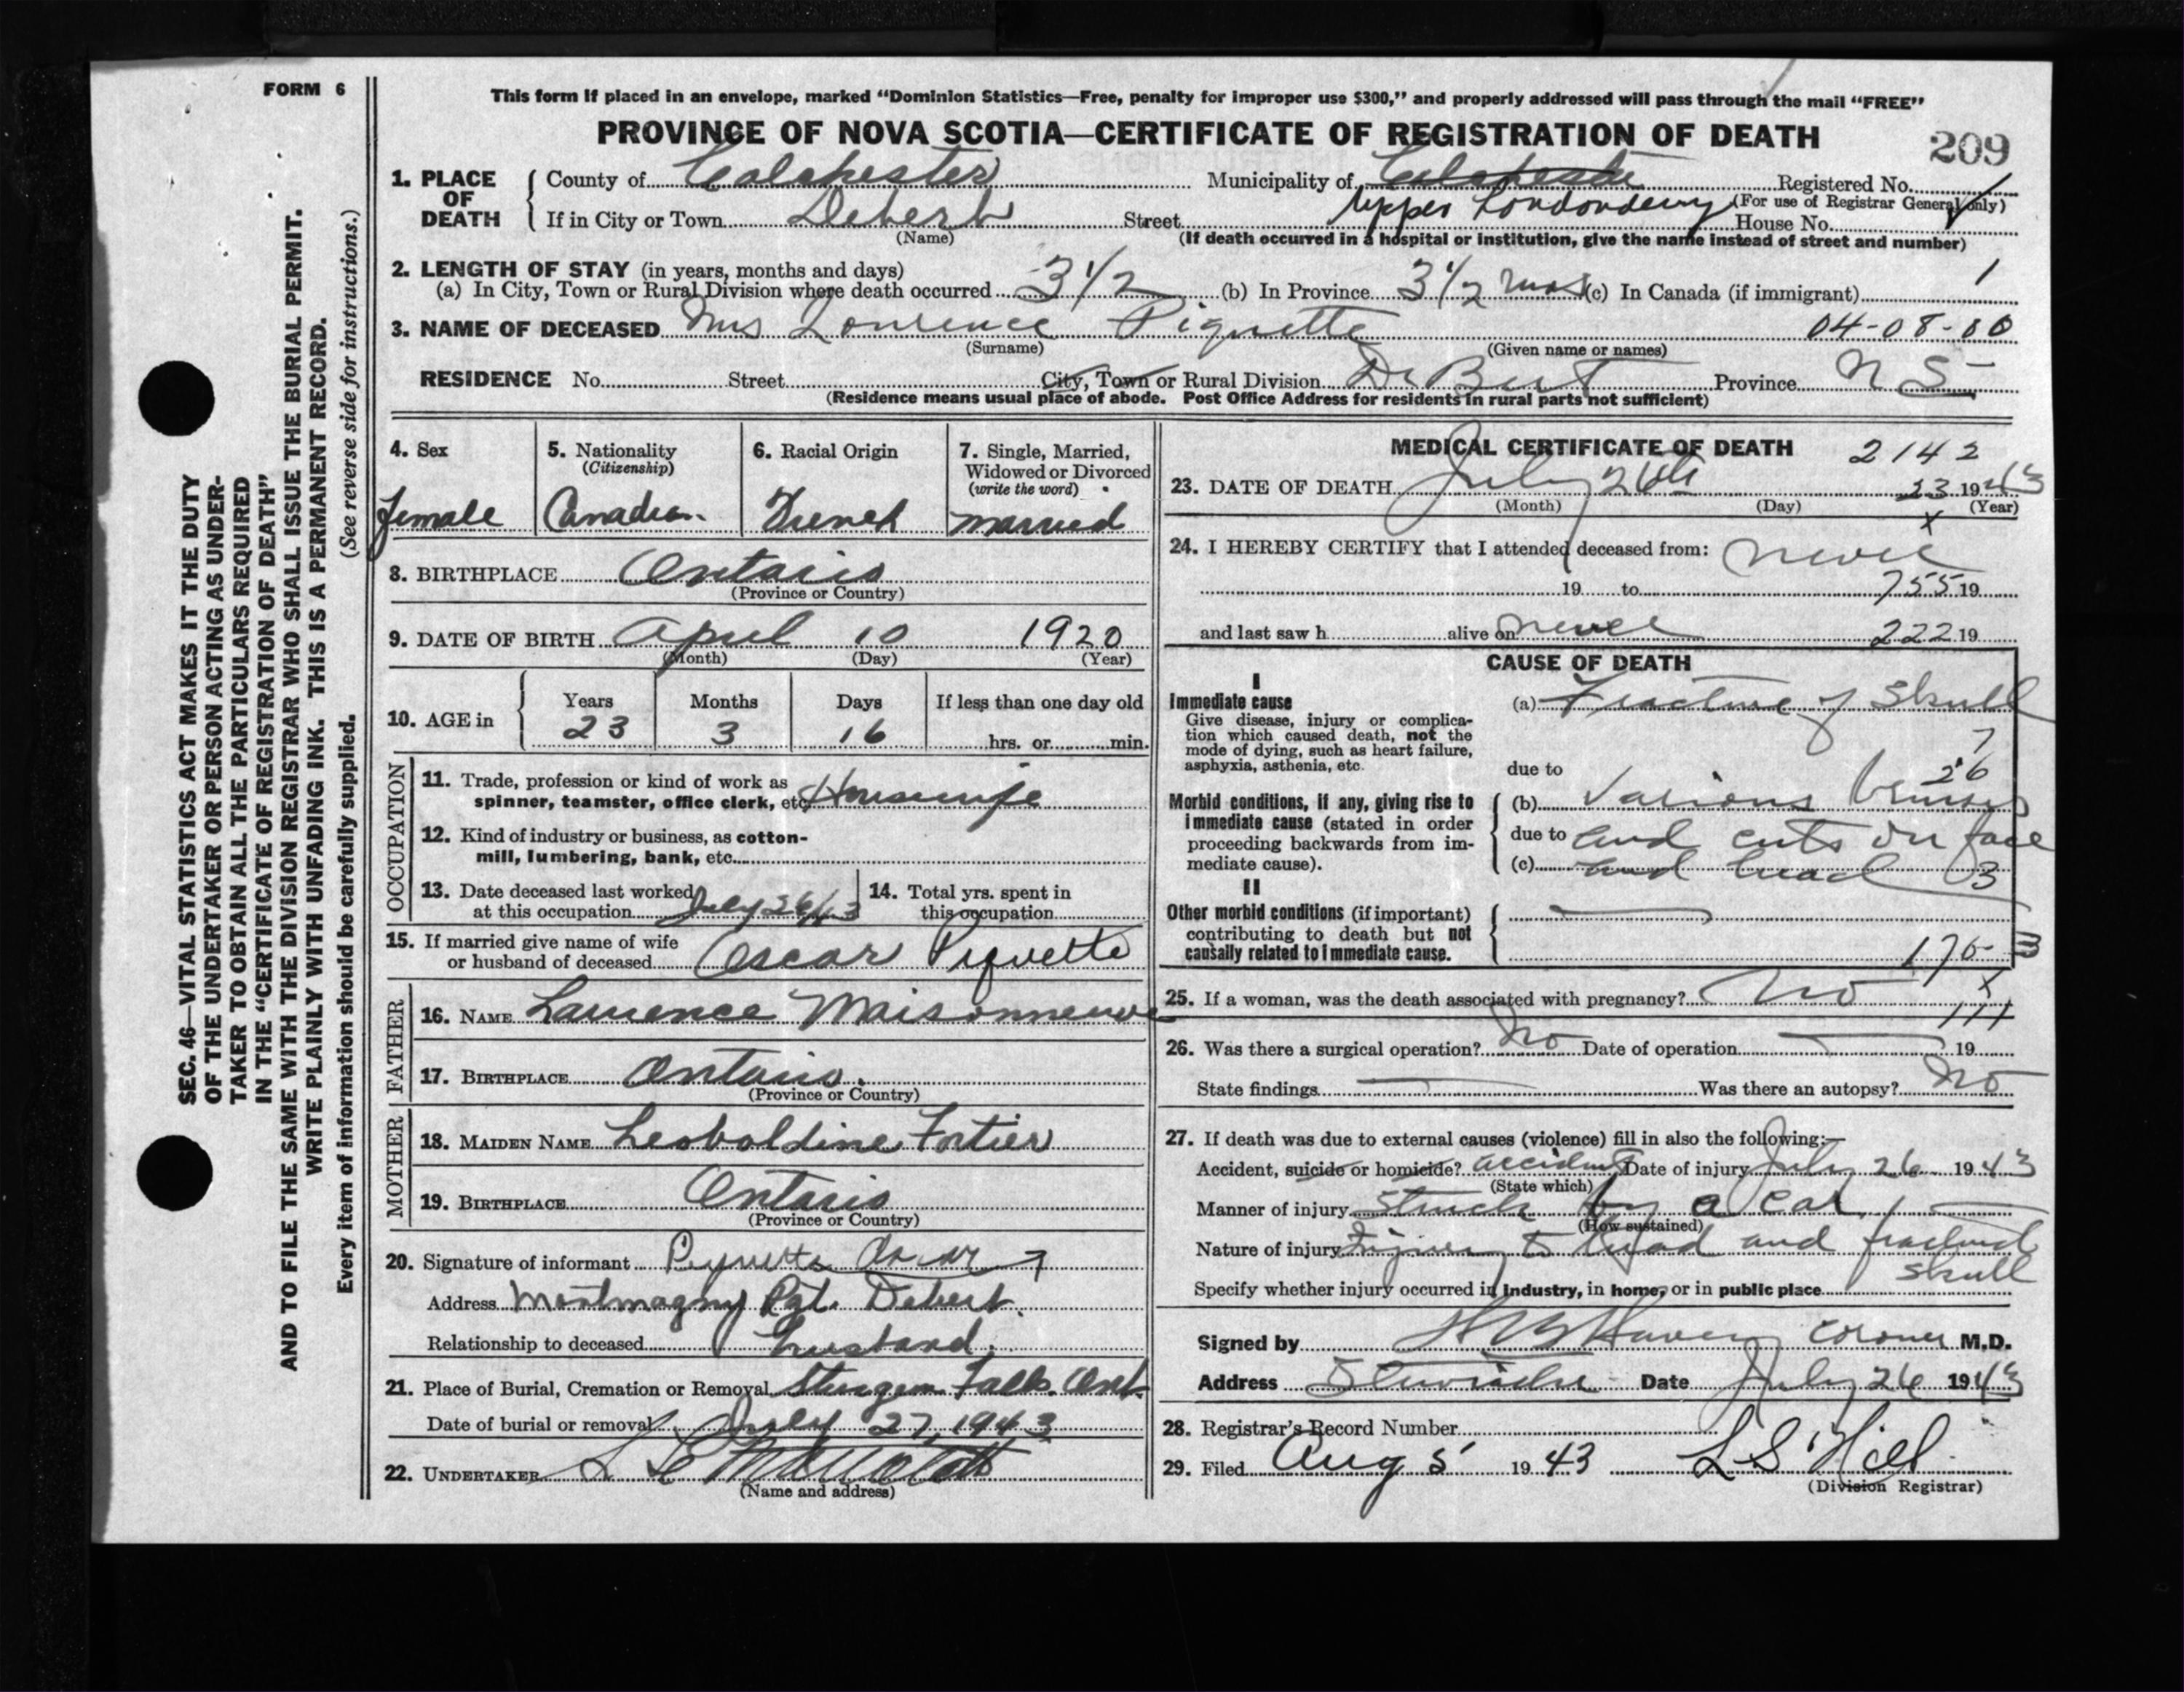 FORM 6
This form if placed in an envelope, marked “Dominion Statistics—Free, penalty for improper use $300,” and properly addressed will pass through the mail “FREE”
PROVINCE OF NOVA SCOTIA—CERTIFICATE OF REGISTRATION OF DEATH
209
1. PLACE OF DEATH
County of Colchester Municipality of Colchester Registered No.
Upper Londonderry (For use of Registrar General only)
If in City or Town Debert Street House No.
(Name) (If death occurred in a hospital or institution, give the name instead of street and number)
2. LENGTH OF STAY (in years, months and days)
(a) In City, Town or Rural Division where death occurred 3 1/2 (b) In Province 3 1/2 mos (c) In Canada (if immigrant) 1
3. NAME OF DECEASED Mrs Lourence Piquette 04-08-00
(Surname) (Given name or names)
RESIDENCE No. Street City, Town or Rural Division DeBert Province N S
(Residence means usual place of abode. Post Office Address for residents in rural parts not sufficient)
4. Sex 5. Nationality 6. Racial Origin 7. Single, Married,
(Citizenship) Widowed or Divorced
(write the word)
Female Canadian French Married
8. BIRTHPLACE Ontario
(Province or Country)
9. DATE OF BIRTH April 10 1920
(Month) (Day) (Year)
10. AGE in
Years Months Days If less than one day old
23 3 16 hrs. or min.
OCCUPATION
11. Trade, profession or kind of work as
spinner, teamster, office clerk, etc. Housewife
12. Kind of industry or business, as cotton-
mill, lumbering, bank, etc.
13. Date deceased last worked
at this occupation July 26/43
14. Total yrs. spent in
this occupation
15. If married give name of wife
or husband of deceased Oscar Piquette
FATHER
16. NAME Laurence Maisonneuve
17. BIRTHPLACE Ontario.
(Province or Country)
MOTHER
18. MAIDEN NAME Leoboldine Fortier
19. BIRTHPLACE Ontario
(Province or Country)
20. Signature of informant Piquette Oscar
Address Montmagny Rgt. Debert.
Relationship to deceased husband.
21. Place of Burial, Cremation or Removal Sturgeon Falls. Ont.
Date of burial or removal July 27, 1943
22. UNDERTAKER
(Name and address)
MEDICAL CERTIFICATE OF DEATH 2142
23. DATE OF DEATH July 26th 23 1943
(Month) (Day) (Year)
x
24. I HEREBY CERTIFY that I attended deceased from: never
19 to 755 19
and last saw h alive on never 222 19
CAUSE OF DEATH
I
Immediate cause
Give disease, injury or complica-
tion which caused death, not the
mode of dying, such as heart failure,
asphyxia, asthenia, etc.
(a) Fracture of Skull
7
due to 26
Morbid conditions, if any, giving rise to
immediate cause (stated in order
proceeding backwards from im-
mediate cause).
(b) Various bruises
due to and cuts on face
(c) and head 3
II
Other morbid conditions (if important)
contributing to death but not
causally related to immediate cause.
170
x
25. If a woman, was the death associated with pregnancy? No
111
26. Was there a surgical operation? No Date of operation 19
State findings Was there an autopsy? No
27. If death was due to external causes (violence) fill in also the following:—
Accident, suicide or homicide? accident Date of injury July 26 1943
(State which)
Manner of injury Struck by a car
(How sustained)
Nature of injury Injury to head and fractured
skull
Specify whether injury occurred in industry, in home, or in public place
Signed by Coroner M.D.
Address Stewiacke Date July 26 1943
28. Registrar’s Record Number
29. Filed Aug 5 1943 L S Hill
(Division Registrar)
SEC. 46—VITAL STATISTICS ACT MAKES IT THE DUTY
OF THE UNDERTAKER OR PERSON ACTING AS UNDER-
TAKER TO OBTAIN ALL THE PARTICULARS REQUIRED
IN THE “CERTIFICATE OF REGISTRATION OF DEATH”
AND TO FILE THE SAME WITH THE DIVISION REGISTRAR WHO SHALL ISSUE THE BURIAL PERMIT.
WRITE PLAINLY WITH UNFADING INK. THIS IS A PERMANENT RECORD.
Every item of information should be carefully supplied. (See reverse side for instructions.)